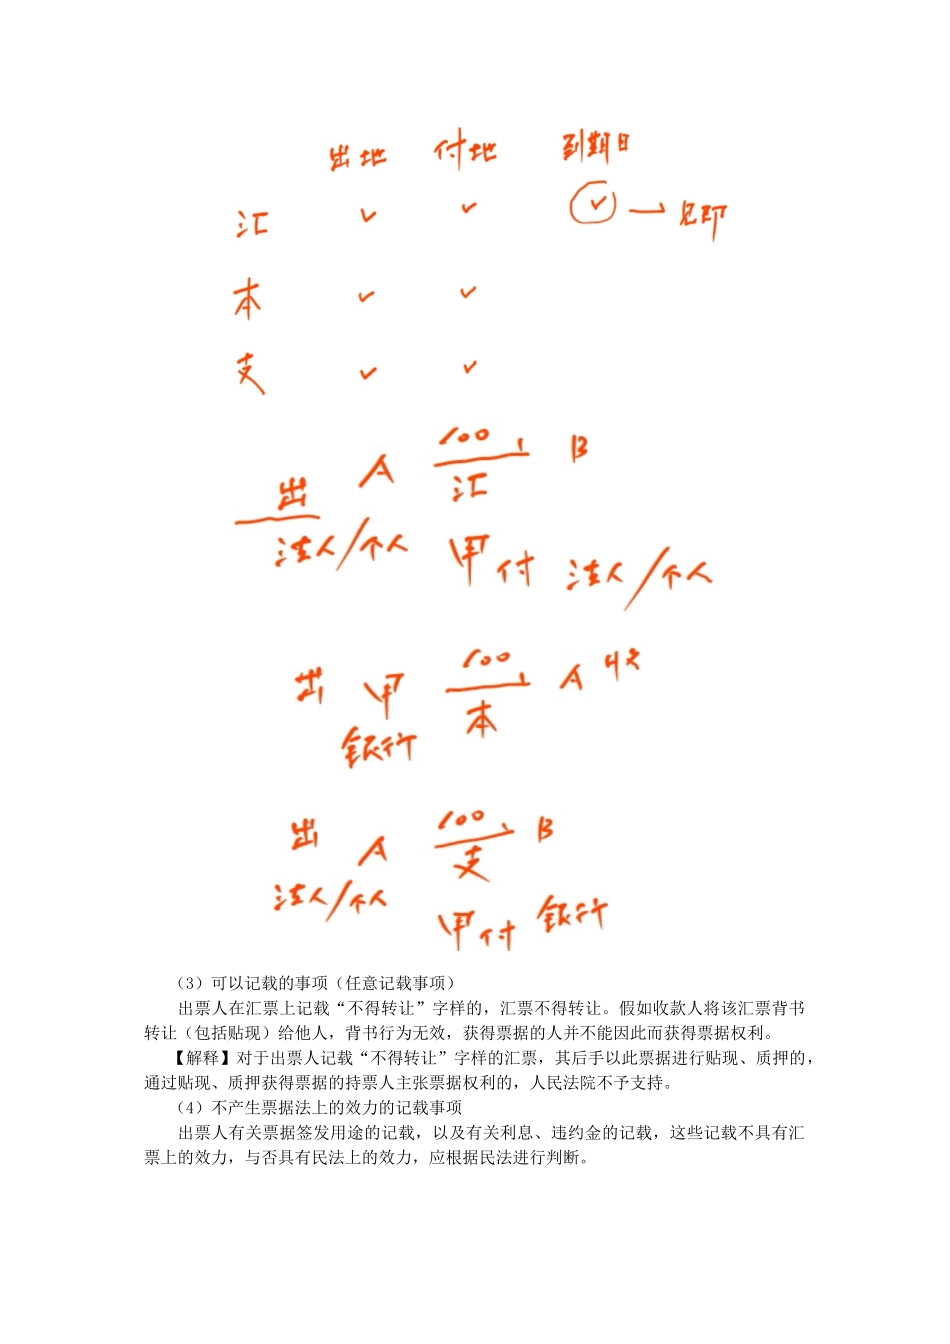 出地 付地 到期日
汇 ✓ ✓ ✓ → 见即
本 ✓ ✓
支 ✓ ✓
出 A 100 B
汇
法人/个人 甲付 法人/个人
出 甲 100 A 收
本
银行
出 A 100 B
支
法人/个人
甲付 银行
（3）可以记载的事项（任意记载事项）
出票人在汇票上记载“不得转让”字样的，汇票不得转让。假如收款人将该汇票背书
转让（包括贴现）给他人，背书行为无效，获得票据的人并不能因此而获得票据权利。
【解释】对于出票人记载“不得转让”字样的汇票，其后手以此票据进行贴现、质押的，
通过贴现、质押获得票据的持票人主张票据权利的，人民法院不予支持。
（4）不产生票据法上的效力的记载事项
出票人有关票据签发用途的记载，以及有关利息、违约金的记载，这些记载不具有汇
票上的效力，与否具有民法上的效力，应根据民法进行判断。